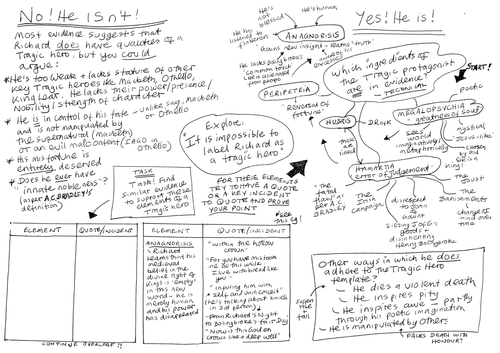 No! He Isn't!
Most evidence suggests that
Richard does have qualities of a
Tragic hero. But you could
argue:
* He's too weak & lacks stature of other
key Tragic heroes like Macbeth, Othello,
King Lear. He lacks their power/presence/
Nobility/strength of character
* He is in control of his fate - unlike, say, Macbeth or Othello
and is not manipulated by
the supernatural (Macbeth)
or an evil malcontent (IAGO in Othello)
* His misfortune is
entirely deserved
* Does he ever have
"innate nobleness"?
(as per A.C. BRADLEY'S
definition)
TASK
Task! Find
similar evidence
to support these
elements of a
Tragic hero
ELEMENT
QUOTE/INCIDENT
ELEMENT
QUOTE/INCIDENT
ANAGNORISIS
Richard
learns that his
medieval
belief in the
divine right of
Kings is 'empty'
in this new
world - he is
merely human
and his power
has disappeared
"within the hollow
crown"
"For you have mistook
me all this while
I live with bread like
you"
"infusing him with
self and vain conceit"
(he's talking about himself
in 3rd person)
From Richard's night
to Bolingbroke's fair Day
"Now is this Golden
crown like a deep well"
CONTINUE OVERLEAF!!
Explore:
'It is impossible to
label Richard as
a tragic hero'
FOR THESE ELEMENTS
TRY TO HAVE A QUOTE
OR A KEY INCIDENT
TO QUOTE AND PROVE
YOUR POINT
see this eg!
Yes! He is!
Which ingredients of
the Tragic protagonist
are in evidence?
TECHNICAL
START!
He's human
He's not blessed
He listened to
flatterers
ANAGNORISIS
Gains new insight - learns "truth"
He lacks Bolingbroke's
'common touch'
PERIPETEIA
"Reversal of
fortune"
HUBRIS
DR08K
then are linked
MEGALOPSYCHIA
"greatness of soul"
Poetic
sees world
imaginatively
metaphorically
mystical
Jesus-like
chosen
by God
HAMARTIA
error of judgement
The "fatal
flaw" as
per A.C.
BRADLEY
The Irish
Campaign
disrespect
to John
of Gaunt
Seizing John of G's
goods +
disinheriting
Henry Bolingbroke
The Joust
The Banishments
change of mind over
time
Other ways in which he does
adhere to the Tragic Hero
template?
- He dies a violent death
- He inspires pity
- He inspires awe - partly
through his poetic imagination
- He is manipulated by others
FACES DEATH WITH
HONOUR?